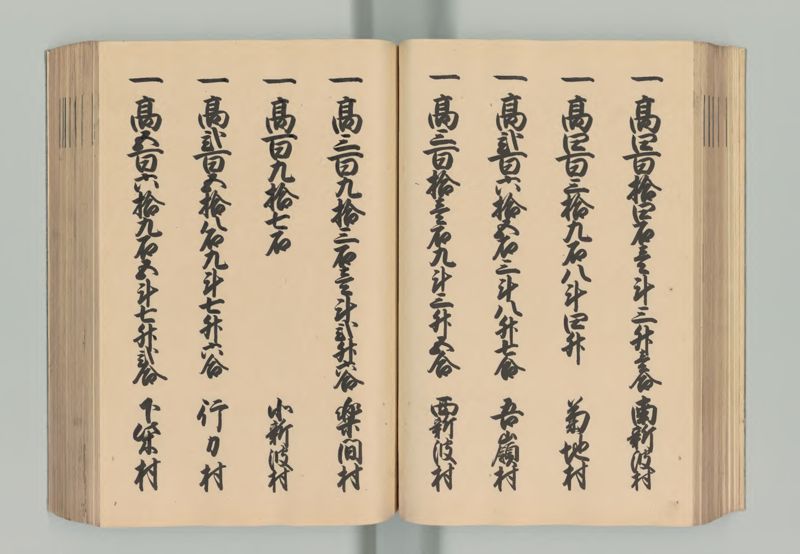 一 高四百拾四石壱斗三升壱合 南新波村
一 高四百三拾九石八斗四升 菊地村
一 高弐百六拾五石三斗八升七合 吾嶺村
一 高三百拾壱石九斗三升五合 西新波村
一 高三百九拾三石壱斗弐升六合 樂間村
一 高百九拾七石 小新波村
一 高弐百五拾八石九斗七升六合 行力村
一 高五百六拾九石五斗七升弐合 下柴村